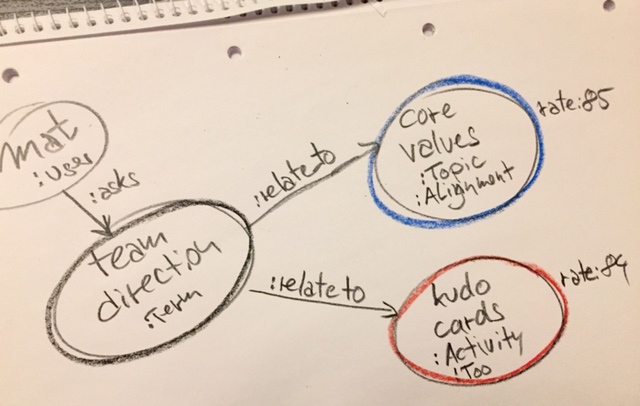 mat
:user
:asks
team
direction
:Term
:relate to
core
values
:Topic
:Alignment
rate:85
:relate to
kudo
cards
:Activity
:Too
rate:84